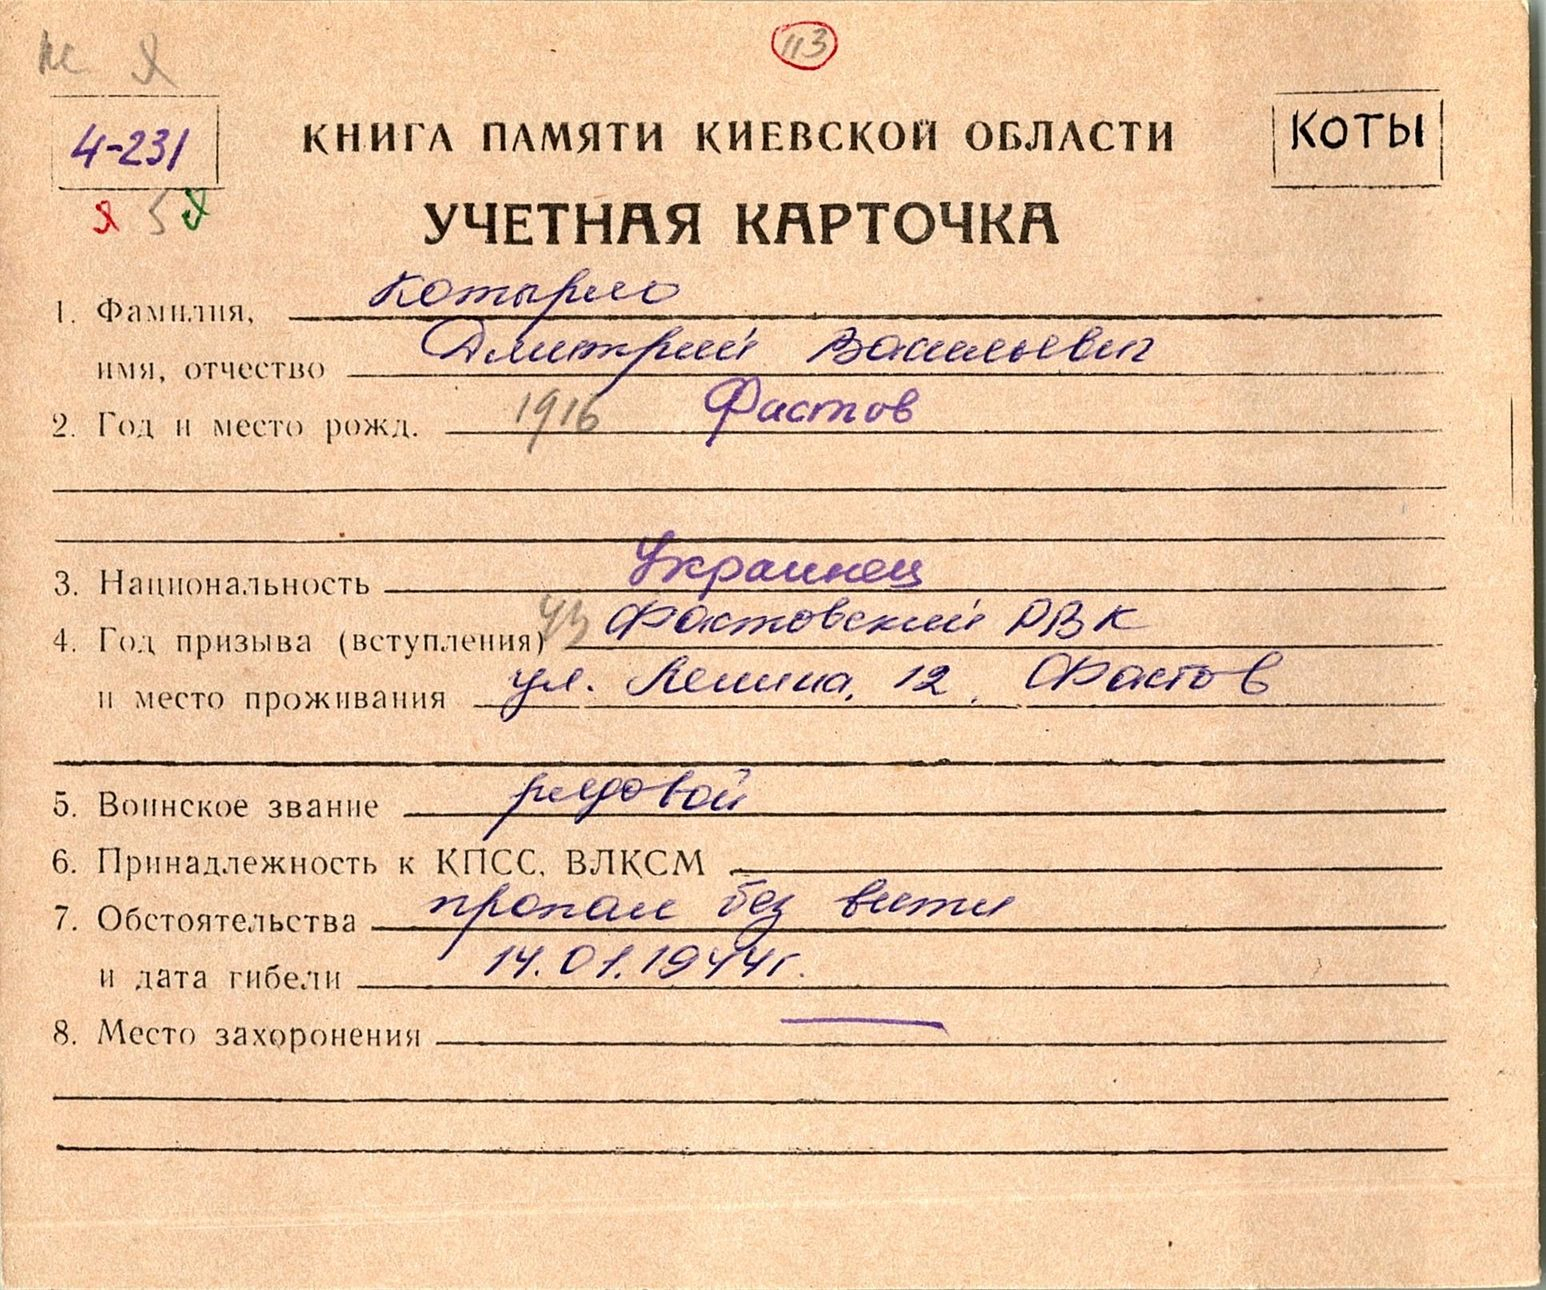 113
4-231
КНИГА ПАМЯТИ КИЕВСКОЙ ОБЛАСТИ
КОТЫ
УЧЕТНАЯ КАРТОЧКА
1. Фамилия, Котырло
имя, отчество Дмитрий Васильевич
2. Год и место рожд. 1916 Фастов
3. Национальность Украинец
4. Год призыва (вступления) 43 Фастовский РВК
и место проживания ул. Ленина, 12, Фастов
5. Воинское звание рядовой
6. Принадлежность к КПСС, ВЛКСМ
7. Обстоятельства пропал без вести
и дата гибели 14.01.1944г.
8. Место захоронения